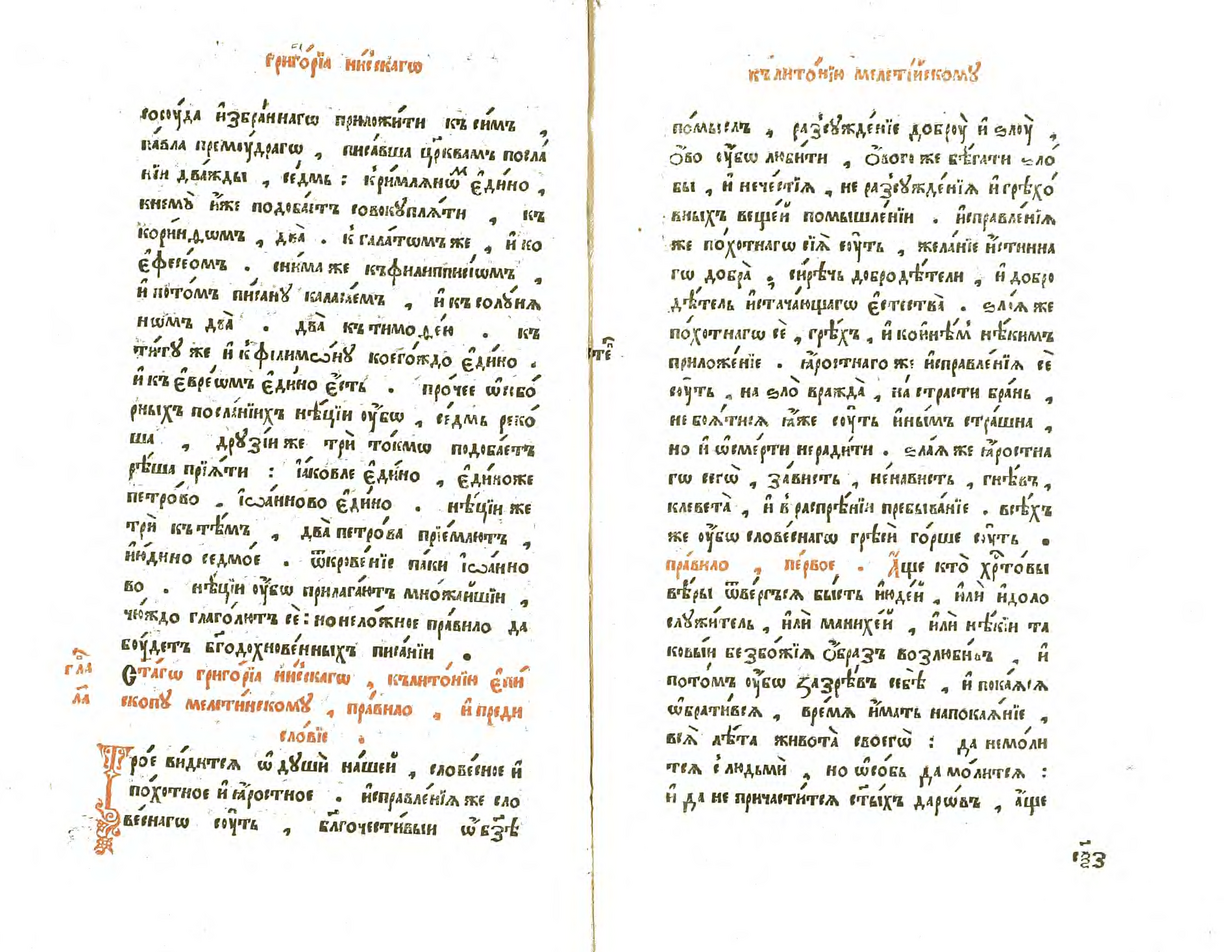 григо́рїа ни́сскагѡ
сосоу́да и҆збра́ннагѡ приложи́ти къ си́мъ ,
па́вла премоу́драгѡ , писа́вша цр҃квамъ посла́
нїи два́жды , се́дмь : к ри́млянѡⷨ є҆ди́но ,
к нему̀ и҆́же подоба́етъ совокупля́ти , къ
кори́нѳѡмъ , два̀ . к гала́тѡмъ же , и҆ ко
є҆фесе́ѡм . сни́ма же къ филиппи́сїѡмъ ,
и҆ пото́мъ писану̀ каласа́емъ , и҆ къ солу́ня
нѡмъ два̀ . два̀ къ тимоѳе́ю . къ
ти́ту же и҆ к̾ філимѡ́ну коего́ждо є҆ди́но .
и҆ къ є҆вре́ѡмъ є҆ди́но є҆́сть . про́чее ѡ҆ собо́
рныхъ посла́нїихъ нѣ́цїи оу҆́бѡ , се́дмь реко́
ша , дру́зїи же трѝ то́кмѡ подоба́етъ
рѣ́ша прїя́ти : і҆а́ковле є҆ди́но , є҆ди́но же
петро́во . і҆ѡа́нново є҆ди́но . нѣ́цїи же
трѝ къ тѣ́мъ , два̀ петро́ва прїе́млютъ ,
и҆ ю҆́дино седмо́е . ѿкрове́нїе па́ки і҆ѡа́нно
во . нѣ́цїи оу҆́бѡ прилага́ютъ мно́жайшїи ,
чю́ждо глаго́лютъ се : но нело́жное пра́вило да
боу́детъ бг҃одохнове́нныхъ писа́нїи .
гла̀
л҃а
Ст҃а́гѡ григо́рїа ни́сскагѡ , къ лито́нїю є҆пи́
скопу мелети́нскому , пра́вило , и҆ преди
сло́вїе .
Трое ви́дится ѡ҆ душѝ на́шей , слове́сное и҆
по́хотное и҆ ꙗ҆́ростное . и҆справле́нїя же сло
ве́снагѡ соу́ть , бл҃гочести́выи ѡ҆ бз҃ѣ
стеⷯ
къ лито́нїю мелеті́йскому
по́мыслъ , разсужде́нїе доброу̀ и҆ ѕлоу̀ ,
ѻ҆́во оу҆́бѡ люби́ти , ѻ҆́вого же бѣ́гати ѕло́
бы , и҆ нече́стїя , не разсужде́нїя и҆ грѣхо́
вныхъ веще́й помышле́нїи . и҆справле́нїя
же по́хотнагѡ сїя̀ соу́ть , жела́нїе и҆́стинна
гѡ добра̀ , си́рѣчь добродѣ́тели , и҆ добро
дѣ́тель и҆стача́ющагѡ є҆стества̀ . ѕла́я же
по́хотнагѡ сѐ , грѣ́хъ , и҆ ко и҆нѣ́м нѣ́кимъ
приложе́нїе . ꙗ҆́ростнаго же и҆справле́нїя сѐ
соу́ть , на ѕло̀ вражда̀ , на́ страсти бра́нь ,
не боя́тися ꙗ҆́же соу́ть и҆ны́мъ стра́шна ,
но и҆ ѡ҆ сме́рти неради́ти . ѕла́я же ꙗ҆́ростна
гѡ сегѡ̀ , за́висть , не́нависть , гнѣ́въ ,
клевета̀ , и҆ в̾ распрѣ́нїи пребыва́нїе . всѣ́хъ
же оу҆́бѡ слове́снагѡ грѣсѝ го́рше соу́ть .
пра́вило , пе́рвое . А҆́ще кто̀ хрⷭ҇то́вы
вѣ́ры ѿве́ргъся бы́сть и҆юде́й , и҆лѝ и҆доло
служи́тель , и҆лѝ манихе́й , и҆лѝ нѣ́кїи та
ковы́и безбо́жїя ѻ҆́бразъ возлюби́въ , и҆
пото́мъ оу҆́бѡ зазрѣ́въ себѣ̀ , и҆ пока́яся
ѡ҆брати́вся , вре́мя и҆́мать на покая́нїе ,
вся̀ лѣ́та живота̀ своегѡ̀ : да не мо́ли
тся с̾ людьмѝ , но ѡ҆со́бь да мо́лится :
и҆ да не причасти́тся ст҃ы́хъ даро́въ , а҆́ще